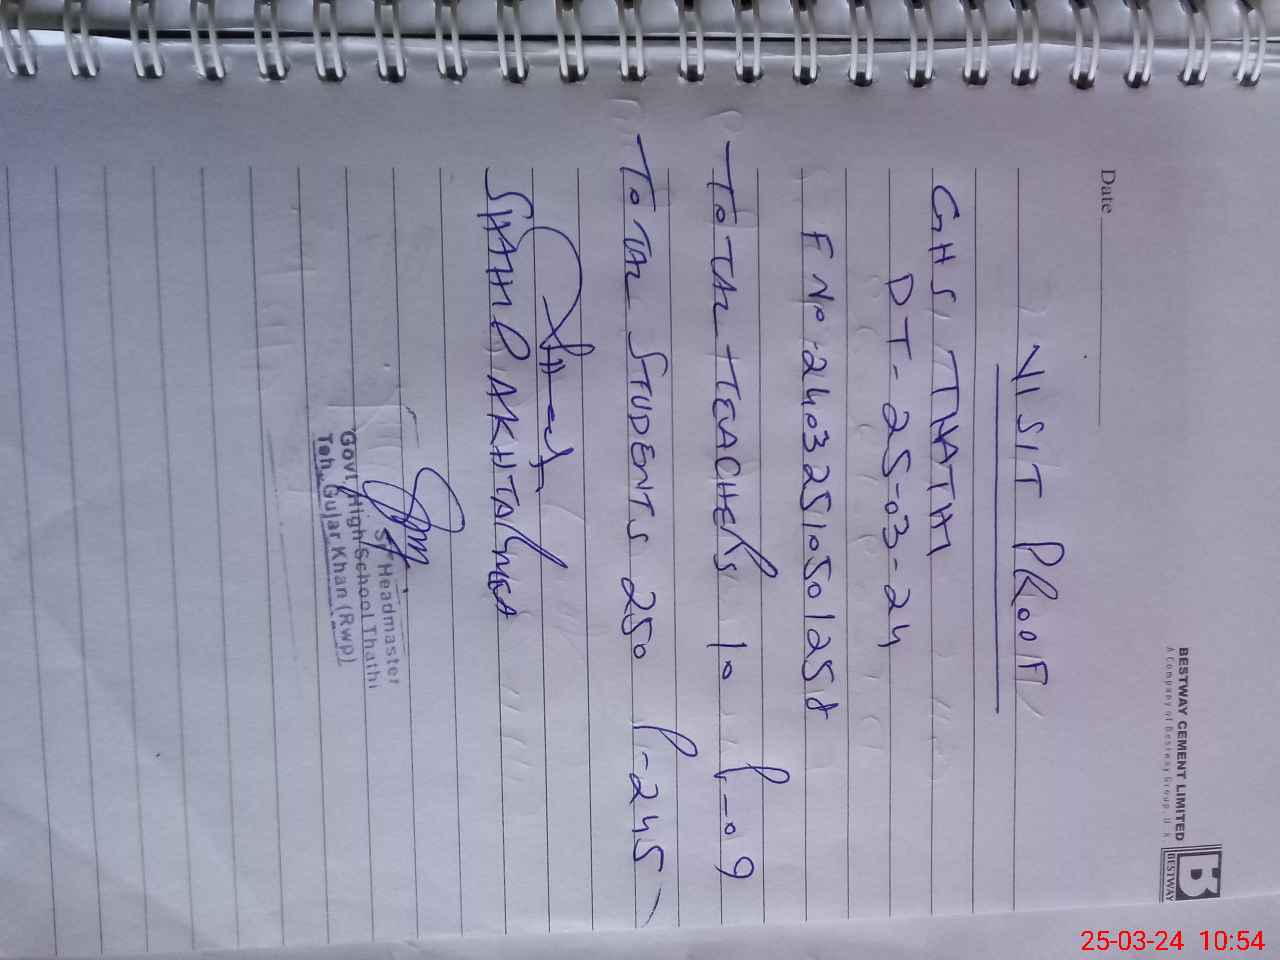 BESTWAY CEMENT LIMITED
A Company of Bestway Group, U.K.
BESTWAY
Date
VISIT PROOF
GHS, THATHI
DT-25-03-24
F No. 24032510501258
TOTAL TEACHERS 10 P-09
TOTAL STUDENTS 250 P-245
SHAHID AKHTAR MEA
Sr Headmaster
Govt, High School Thathi
Teh. Gujar Khan (RWP)
25-03-24 10:54